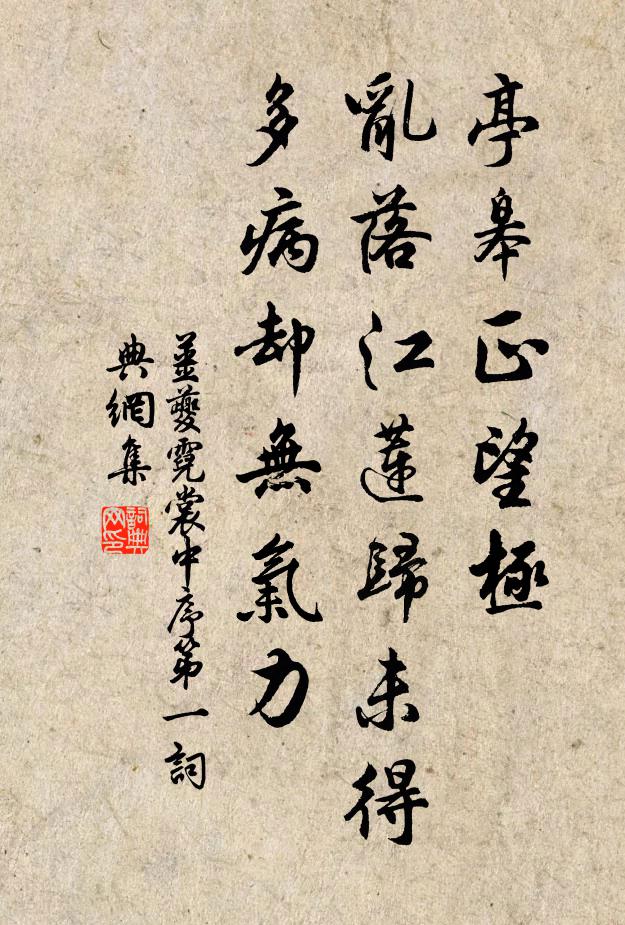 亭皋正望極
亂落江蓮歸未得
多病却無氣力
姜夔霓裳中序第一詞
典網集
詞典
网印